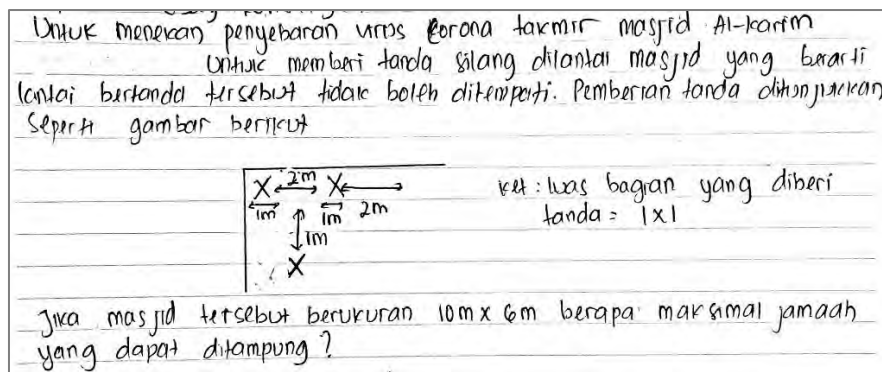 Untuk menekan penyebaran virus corona takmir masjid Al-karim
untuk memberi tanda silang dilantai masjid yang berarti
lantai bertanda tersebut tidak boleh ditempati. Pemberian tanda ditunjukkan
seperti gambar berikut
X 2m X
1m 1m 2m
1m
X
ket : luas bagian yang diberi
tanda = 1x1
Jika masjid tersebut berukuran 10m x 6m berapa maksimal jamaah
yang dapat ditampung ?